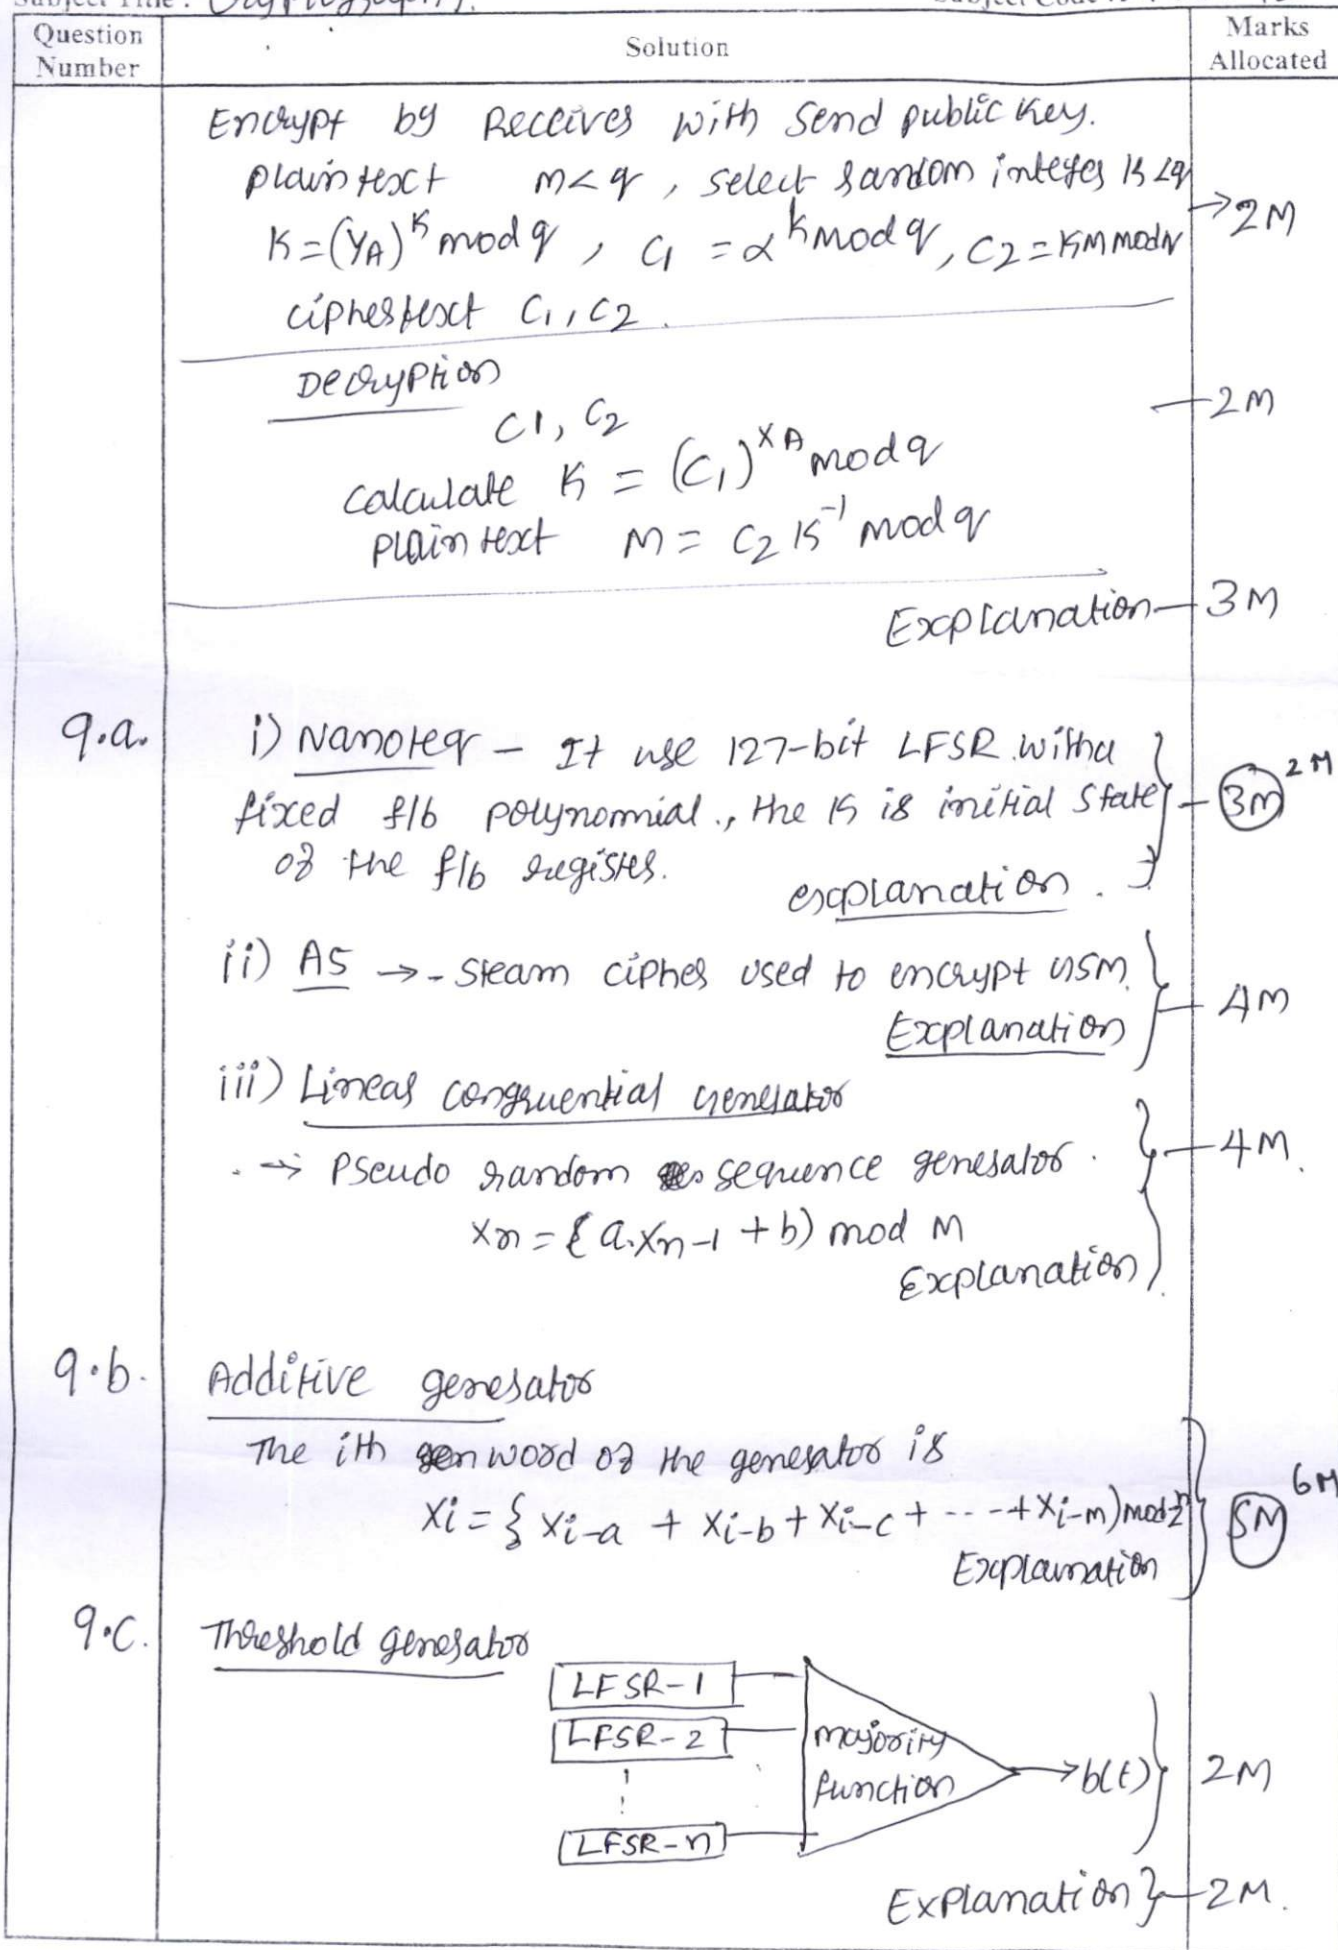 Subject Title : Cryptography.
Question Number
Solution
Marks Allocated
Encrypt by Receiver with Send public key.
plain text m<q , select random integer k<q
K=(YA)^K mod q , C1 = α^k mod q, C2 = KM mod q
→2M
ciphertext C1, C2.
Decryption
C1, C2
-2M
calculate K = (C1)^XA mod q
plain text M = C2 K^-1 mod q
Explanation - 3M
9.a.
i) Nanoteq - It use 127-bit LFSR. with a
fixed f/b polynomial., the K is initial State
of the f/b register.
explanation.
- 3M 2M
ii) A5 → - Steam cipher used to encrypt GSM.
Explanation
- 4M
iii) Linear congruential Generator
. → Pseudo random sequence generator.
- 4M.
xn = { a.xn-1 + b) mod M
Explanation
9.b.
Additive generator
The ith word of the generator is
Xi = { Xi-a + Xi-b + Xi-c + --- + Xi-m) mod 2^n
5M 6M
Explanation
9.c.
Threshold generator
LFSR-1
LFSR-2
majority function
→ b(t)
2M
LFSR-n
Explanation } - 2M.